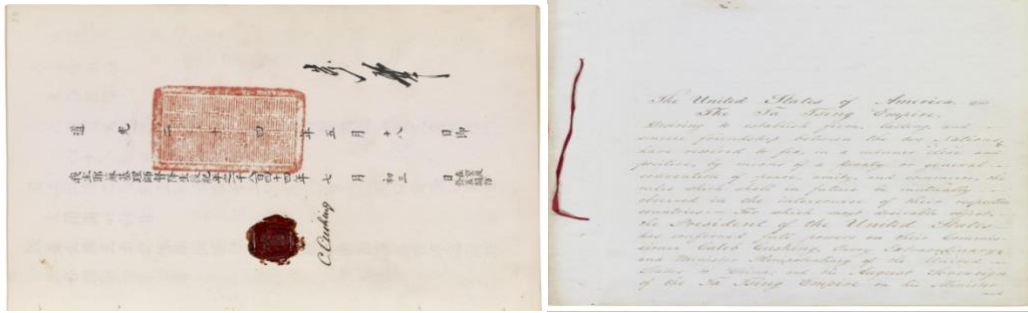 道光二十四年五月十八日即
我主耶穌基理師督降生後紀年之一千八百四十四年七月初三日
C. Cushing
The United States of America, and
The Ta Tsing Empire,
Desiring to establish firm, lasting, and
sincere friendship between the two Nations,
have resolved to fix, in a manner clear and
positive, by means of a treaty or general
convention of peace, amity, and commerce, the
rules which shall in future be mutually
observed in the intercourse of their respective
countries:— For which most desirable object,
the President of the United States
has conferred full powers on their Commis-
sioner Caleb Cushing, Envoy Extraordinary
and Minister Plenipotentiary of the United
States to China, and the August Sovereign
of the Ta Tsing Empire on his Minister
and